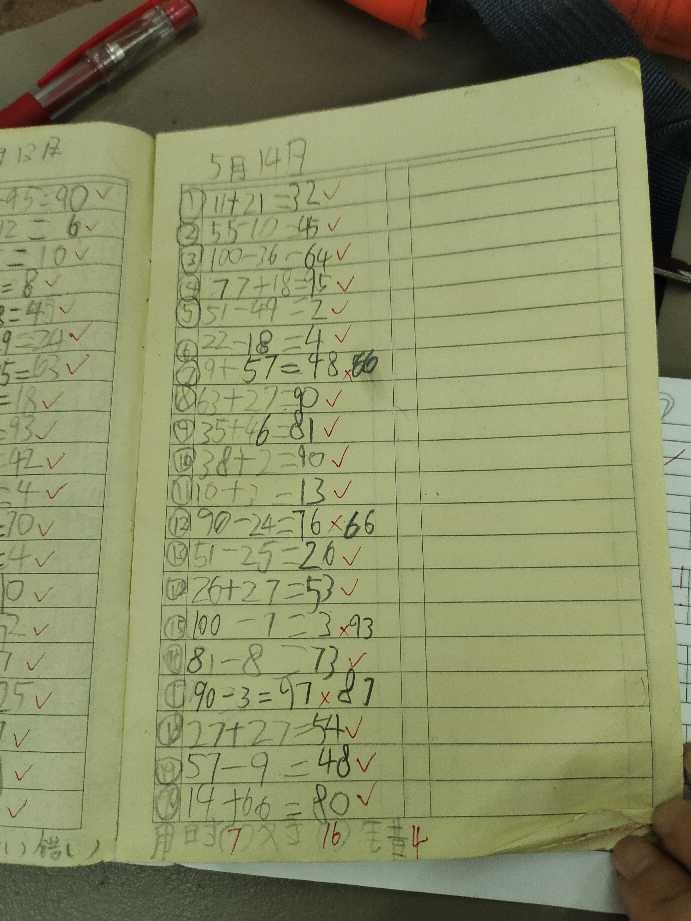 月13日
-95=90✓
12=6✓
=10✓
=8✓
8=49✓
9=24✓
5=63✓
=18✓
=93✓
=42✓
=4✓
=70✓
=4✓
10✓
52✓
7✓
25✓
✓
✓
✓
错
5月14日
① 11+21=32✓
② 55-10=45✓
③ 100-36=64✓
④ 77+18=95✓
⑤ 51-49=2✓
⑥ 22-18=4✓
⑦ 9+57=48×66
⑧ 63+27=90✓
⑨ 35+46=81✓
⑩ 38+2=90✓
⑪ 10+3=13✓
⑫ 90-24=76×66
⑬ 51-25=26✓
⑭ 26+27=53✓
⑮ 100-7=3×93
⑯ 81-8=73✓
⑰ 90-3=97×87
⑱ 27+27=54✓
⑲ 57-9=48✓
⑳ 14+66=80✓
用时(7)对(16)错4